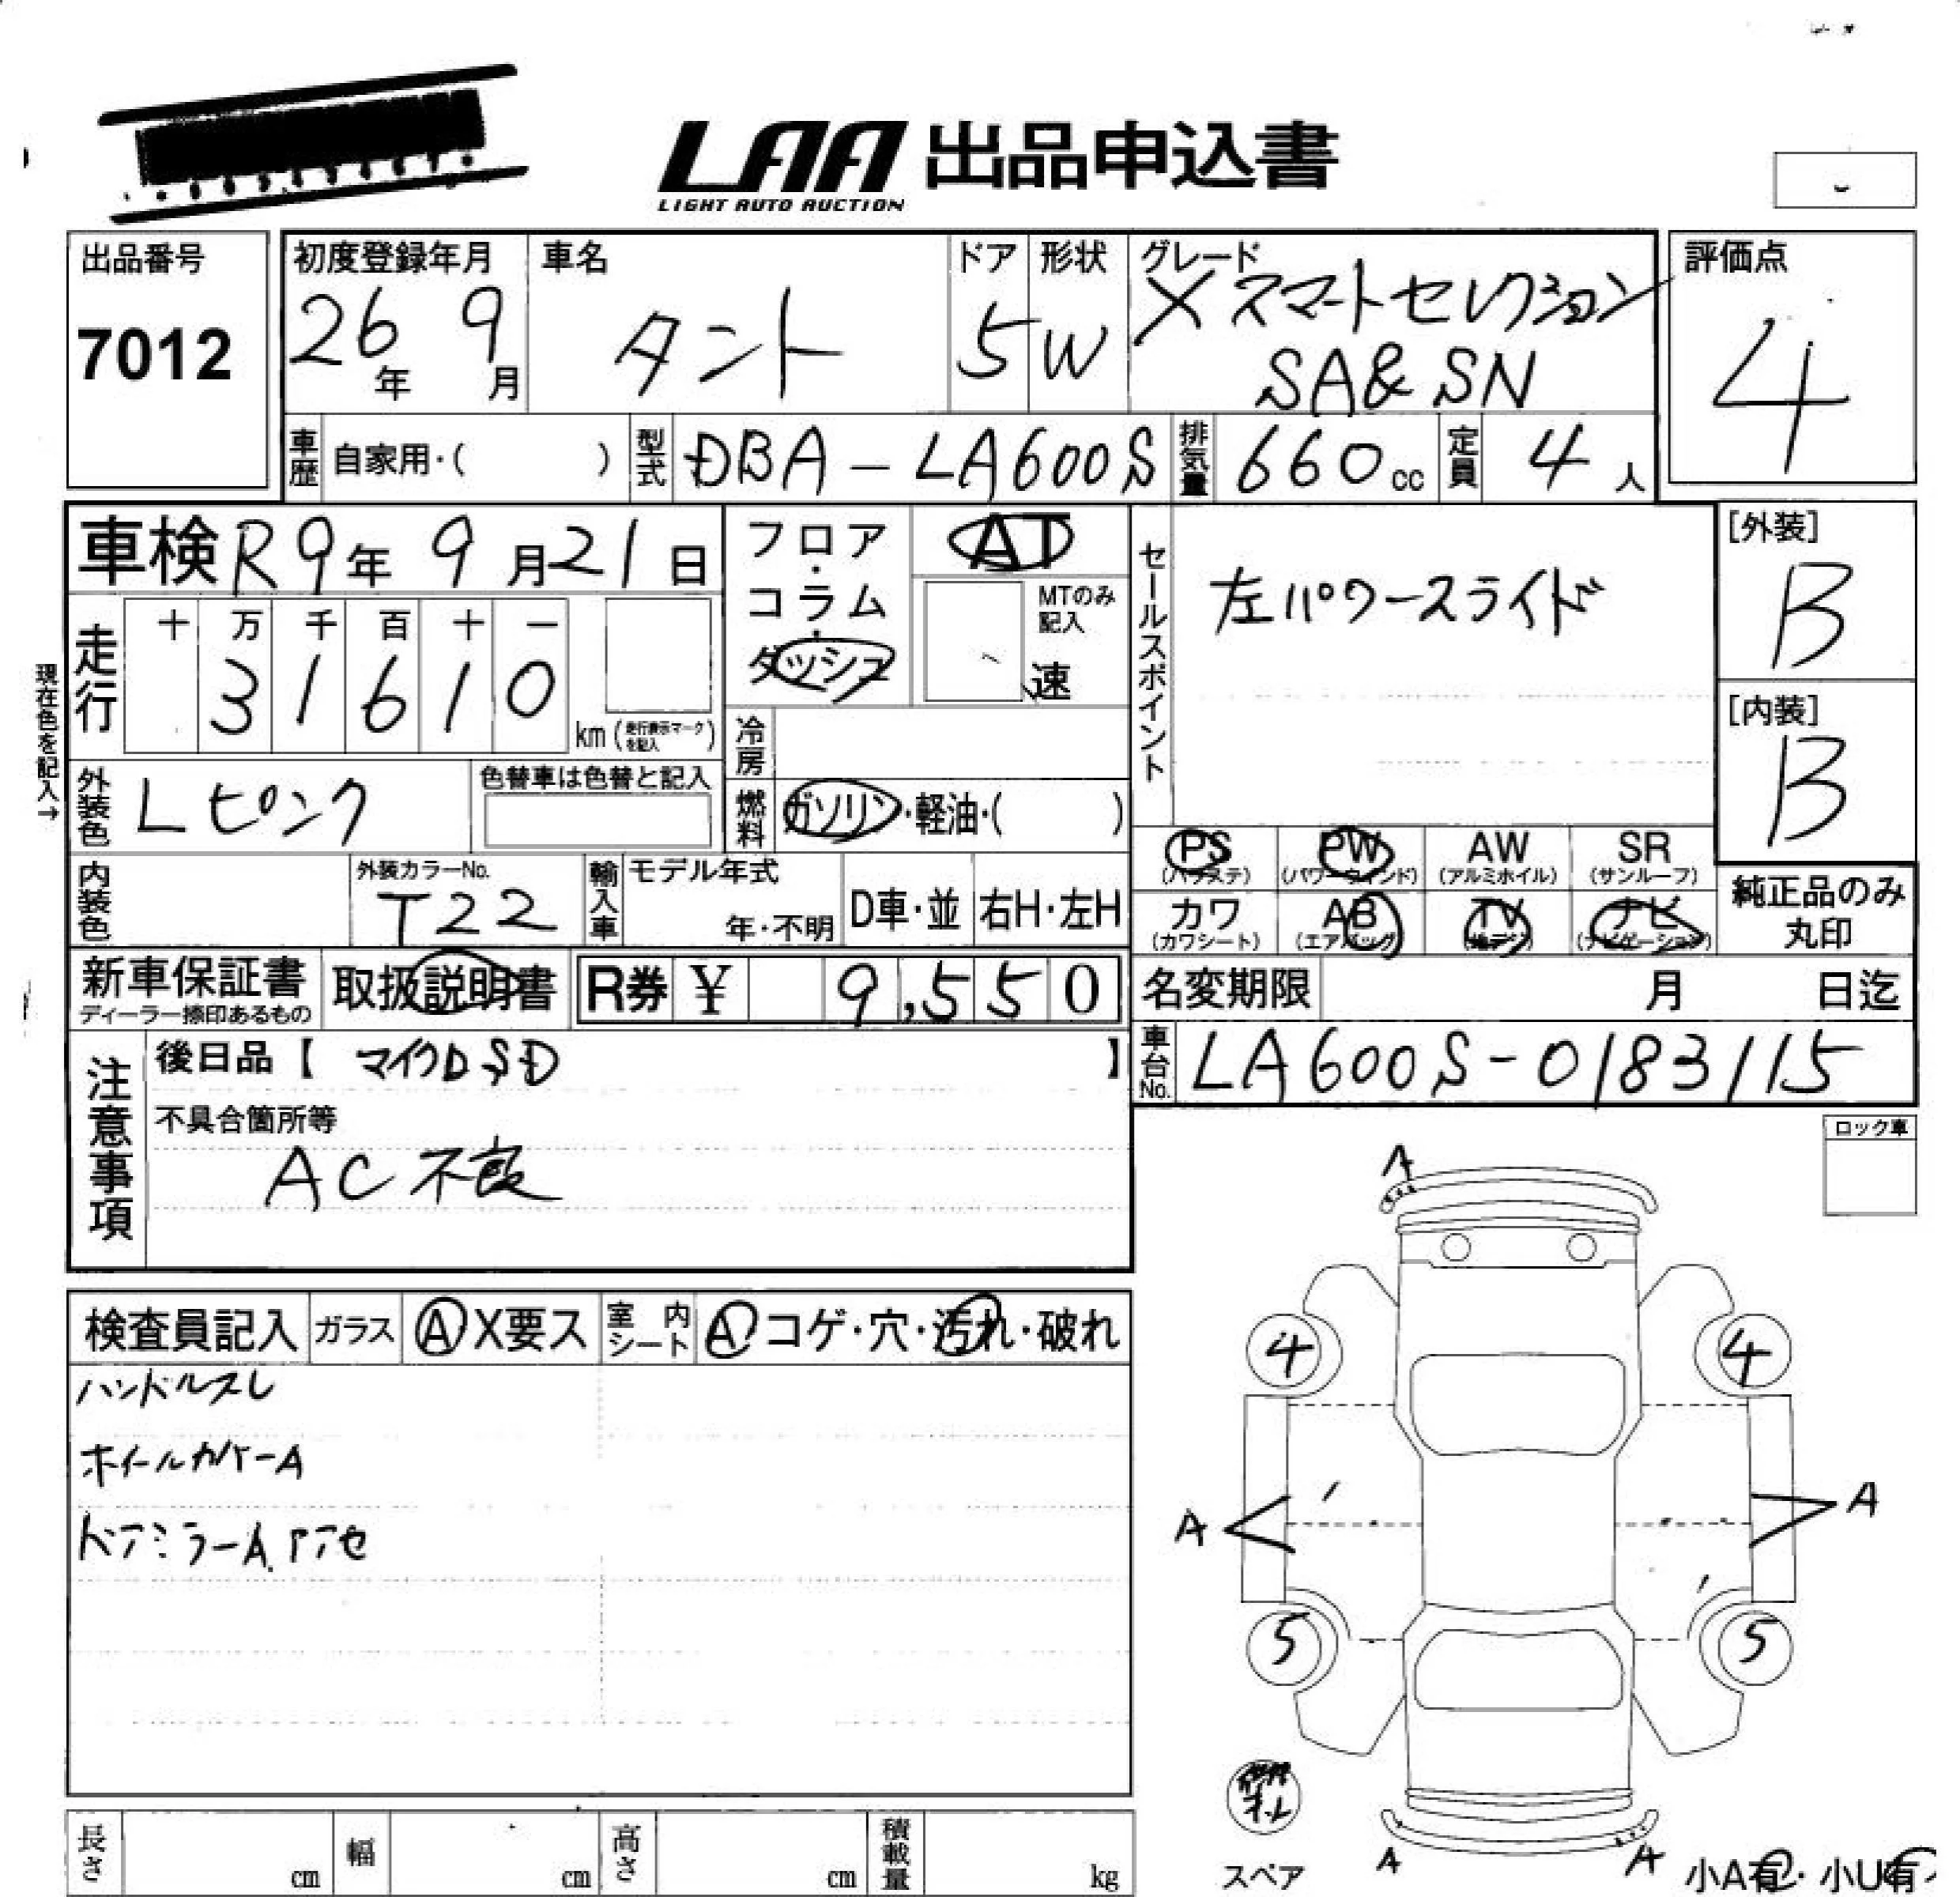 LAA 出品申込書
LIGHT AUTO AUCTION
出品番号
7012
初度登録年月
26年 9月
車名
タント
ドア
5
形状
W
グレード
X スマートセレクション
SA&SN
評価点
4
車歴 自家用・( )
型式 DBA-LA600S
排気量 660cc
定員 4人
車検 R9年 9月21日
フロア・コラム・ダッシュ
AT
MTのみ記入
速
セールスポイント
左パワースライド
[外装]
B
[内装]
B
現在色を記入→
走行
十 万 千 百 十 一
3 1 6 1 0
km (走行表示マークを記入)
冷房
外装色 Lピンク
色替車は色替と記入
燃料 ガソリン・軽油・( )
PS (パワステ) PW (パワーウインド) AW (アルミホイル) SR (サンルーフ)
カワ (カワシート) AB (エアバッグ) TV (地デジ) ナビ (ナビゲーション)
純正品のみ丸印
内装色
外装カラーNo.
T22
輸入車 モデル年式
年・不明
D車・並
右H・左H
新車保証書
ディーラー捺印あるもの
取扱説明書
R券 ¥ 9,550
名変期限 月 日迄
車台No. LA600S-0183115
注意事項
後日品【 マイクロSD 】
不具合箇所等
AC不良
ロック車
検査員記入 ガラス A X要ス 室内シート A コゲ・穴・汚れ・破れ
ハンドルスレ
ホイールカバーA
ドアミラーA アセ
A
4 4
A A
5 5
A A
スペア
小A有・小U有
長さ cm
幅 cm
高さ cm
積載量 kg